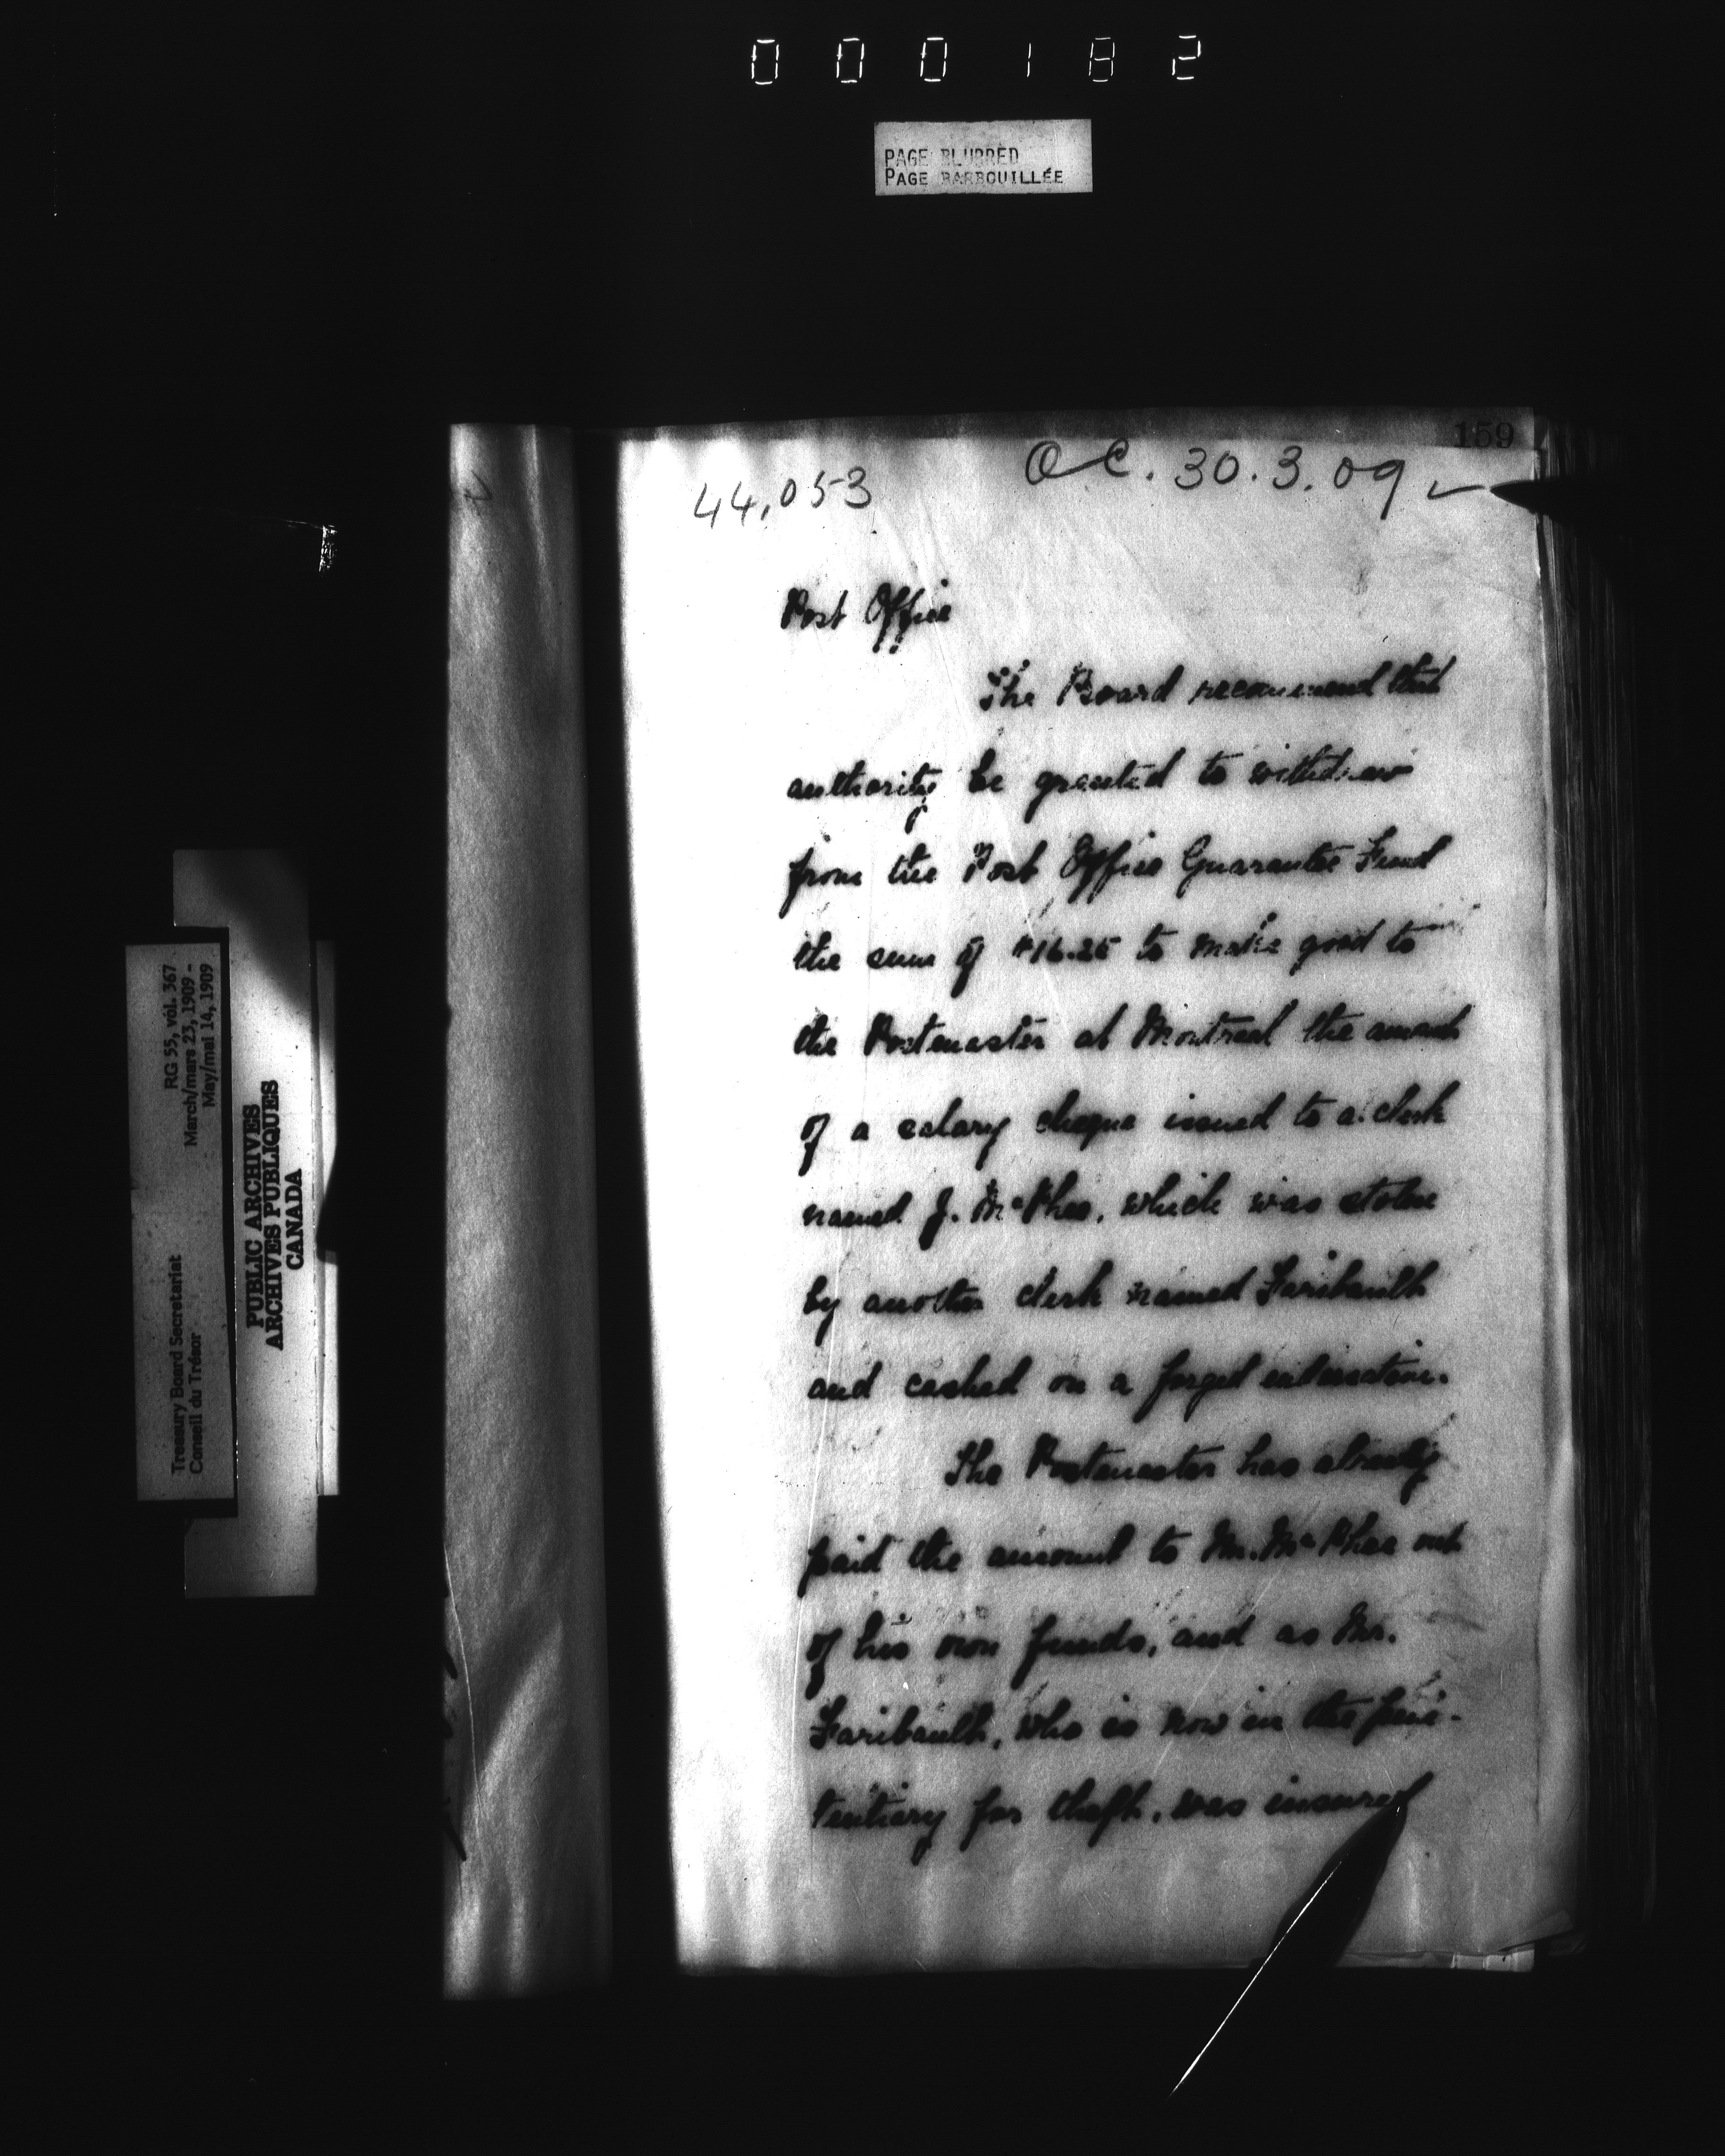 000182
PAGE BLURRED
PAGE BARBOUILLÉE
159
44,053
OC. 30.3.09
Post Office
The Board recommend that
authority be granted to withdraw
from the Post Office Guarantee Fund
the sum of $16.25 to make good to
the Postmaster at Montreal the amount
of a salary cheque issued to a clerk
named J. McPhee, which was stolen
by another clerk named Faribault
and cashed on a forged endorsation.
The Postmaster has already
paid the amount to Mr. McPhee out
of his own funds, and as Mr.
Faribault, who is now in the peni-
tentiary for theft, was insured
RG 55, vol. 367
March/mars 23, 1909 -
May/mai 14, 1909
Treasury Board Secretariat
Conseil du Trésor
PUBLIC ARCHIVES
ARCHIVES PUBLIQUES
CANADA